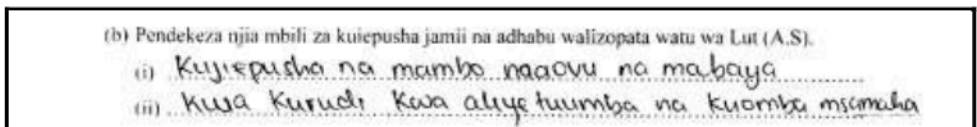 (b) Pendekeza njia mbili za kuiepusha jamii na adhabu walizopata watu wa Lut (A.S).
(i) Kujiepusha na mambo maovu na mabaya
(ii) Kwa Kurudi Kwa aliyetuumba na kuomba msamaha